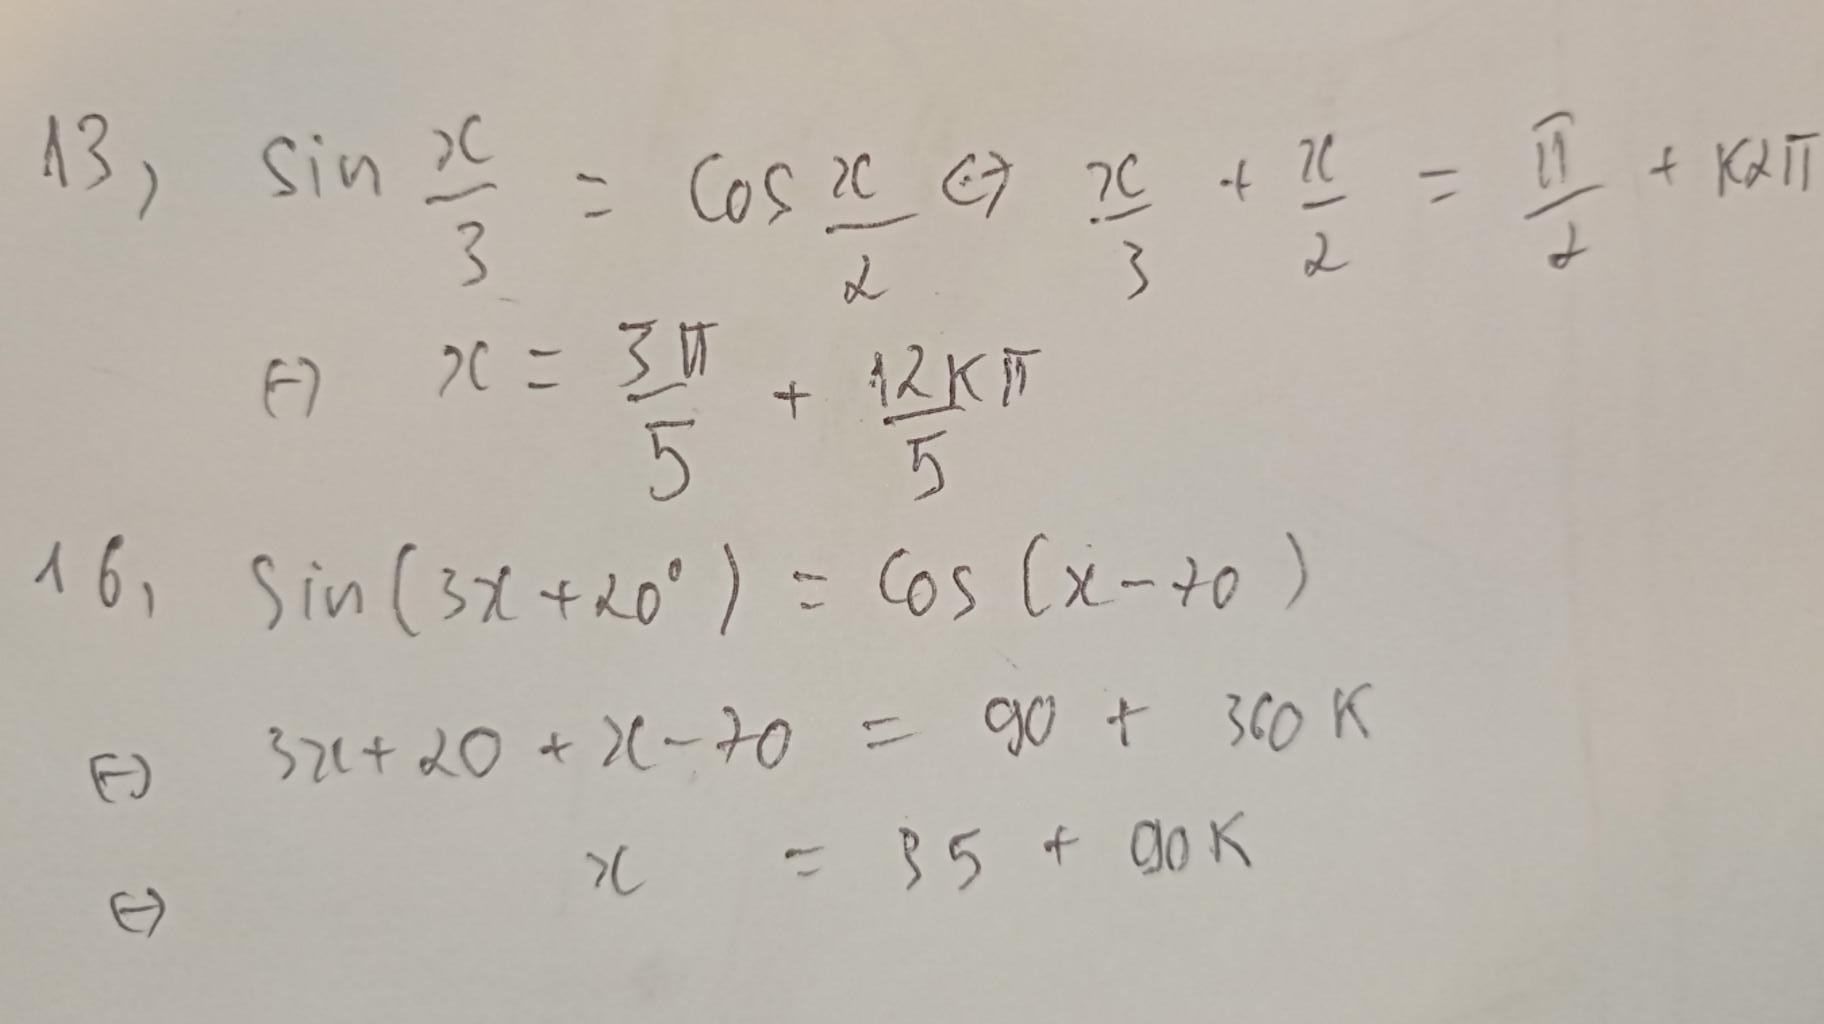 13, sin x/3 = cos x/2 ⇔ x/3 + x/2 = π/2 + k2π
⇔ x = 3π/5 + 12kπ/5
16, sin(3x+20°) = cos (x-70)
⇔ 3x+20+x-70 = 90 + 360k
⇔ x = 35 + 90k